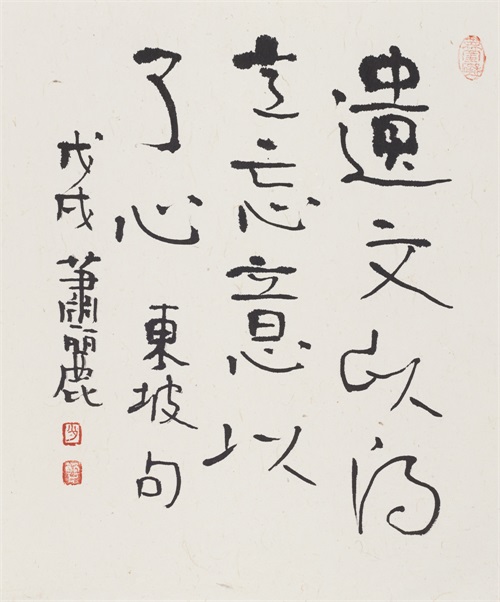 遺文以得
意忘意以
了心 東坡句
戊戌 蕭麗